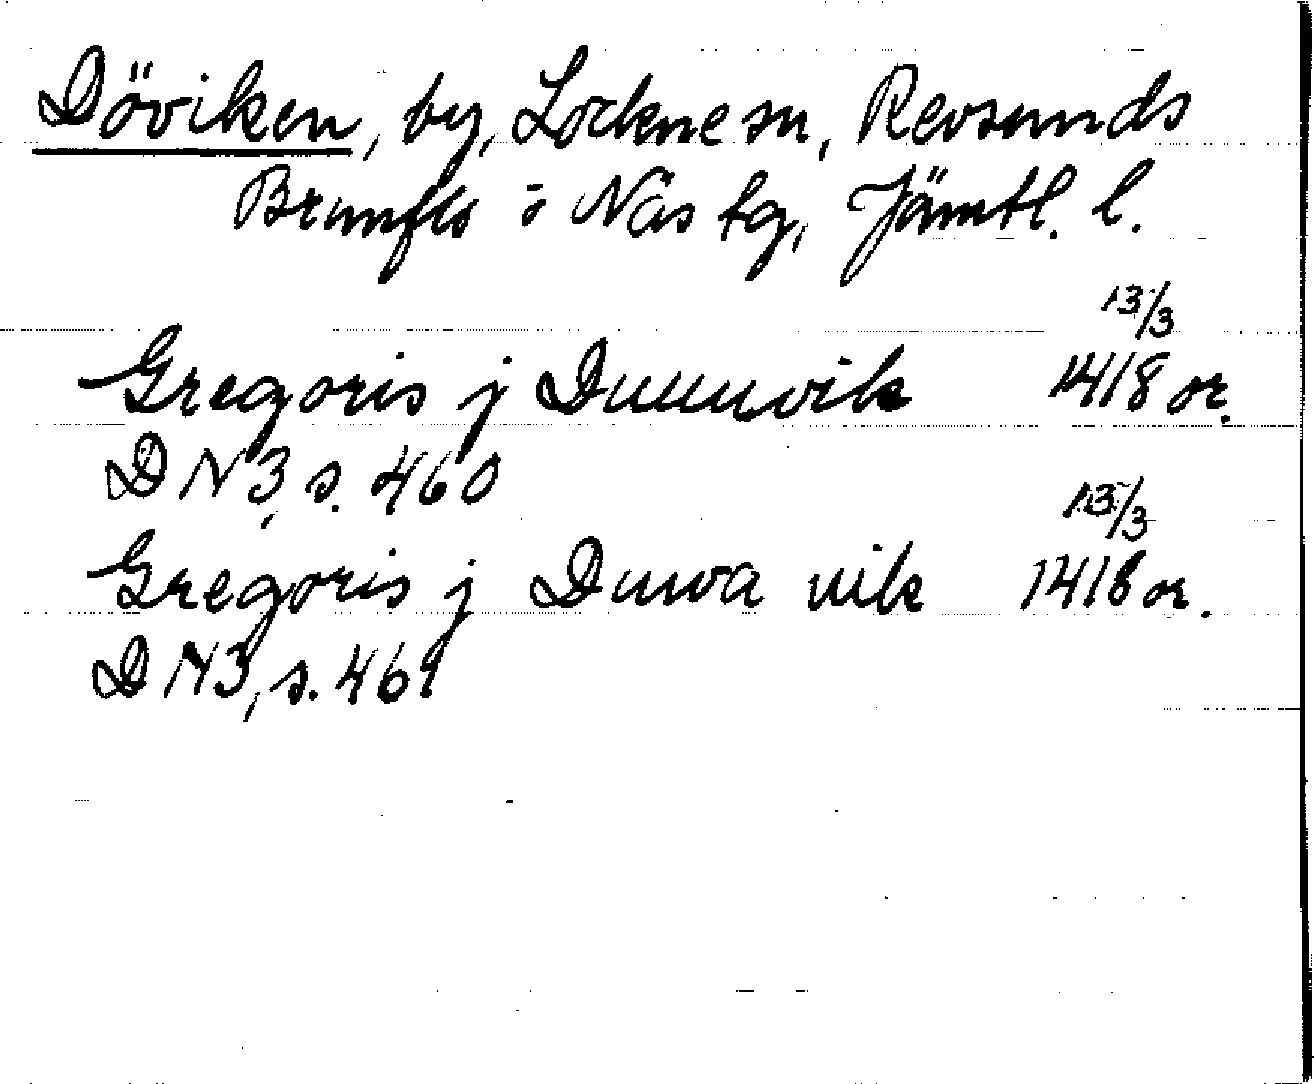 Döviken, by, Lockne sn, Revsunds
Brunflo o Näs tg, Jämtl. l.
13/3
Gregoris j Duuuvik 1418 or.
DN 3, s. 460
13/3
Gregoris j Duwa vik 1418 or.
DN 3, s. 461